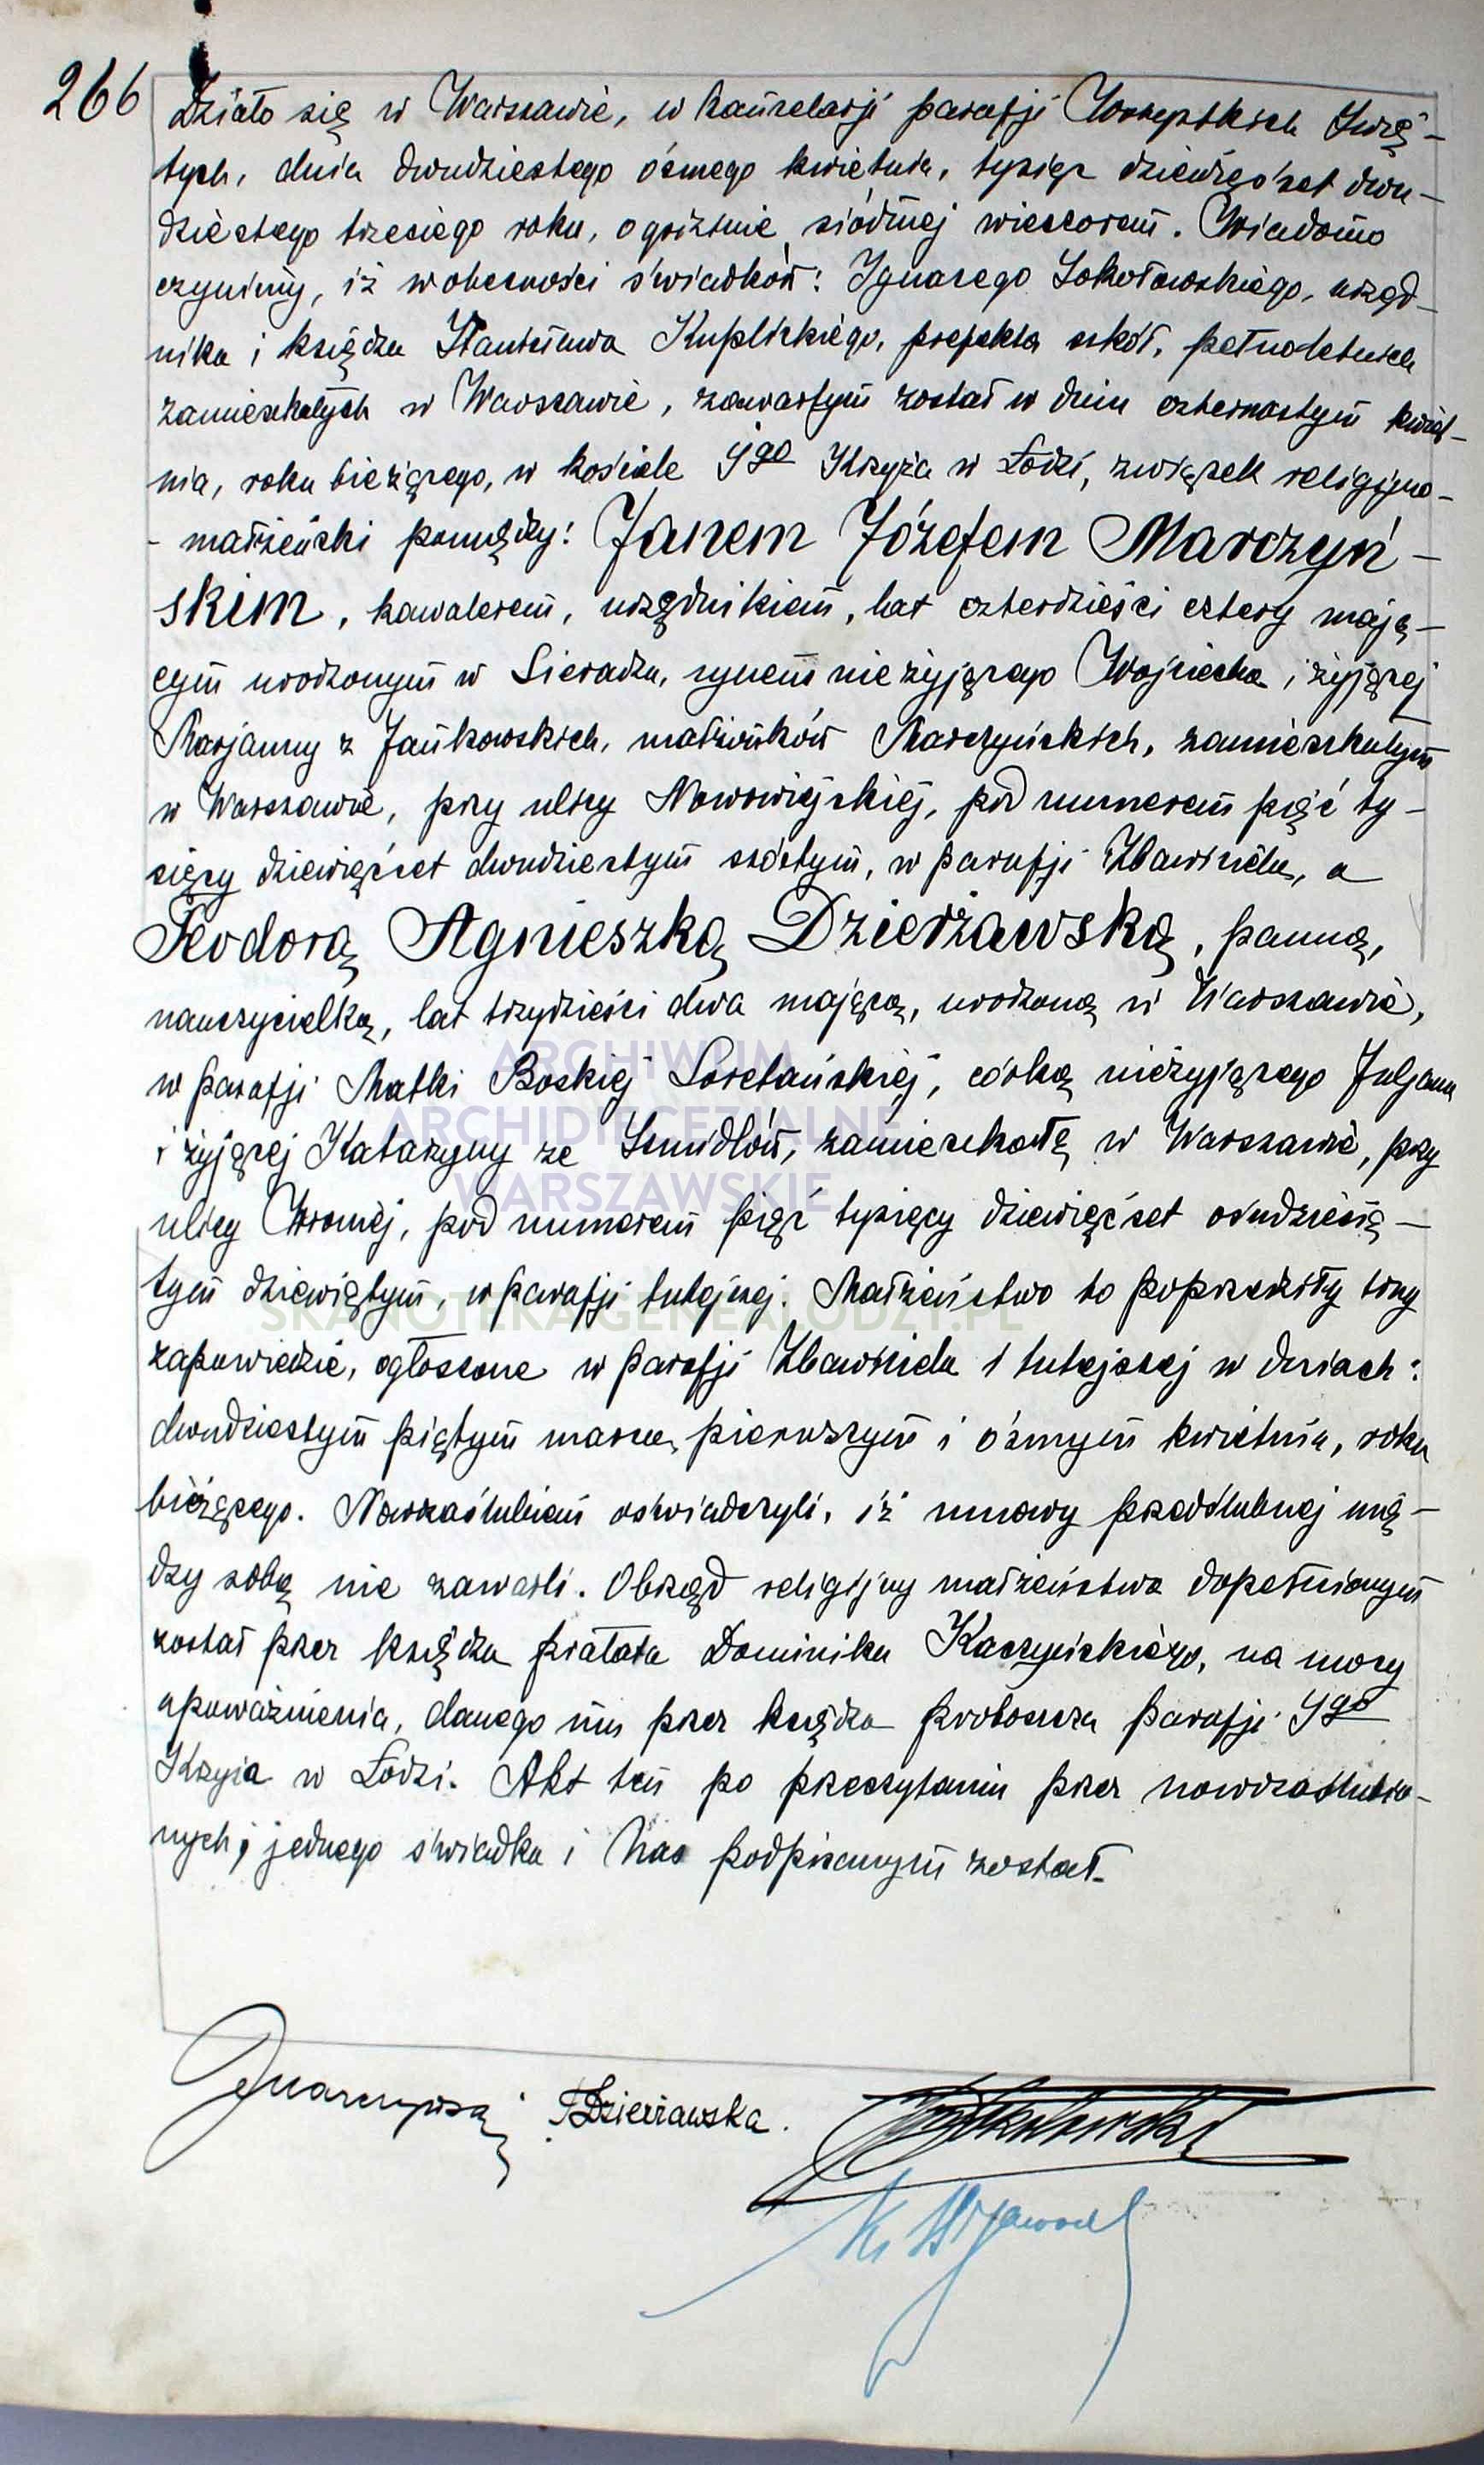 266
Działo się w Warszawie, w kancelarji parafji Wszystkich Świę-
tych, dnia dwudziestego ósmego kwietnia, tysiąc dziewięćset dwu-
dziestego trzeciego roku, o godzinie siódmej wieczorem. Wiadomo
czynimy, iż w obecności świadków: Ignacego Sokołowskiego, urzęd-
nika i księdza Stanisława Kuplickiego, prefekta szkół, pełnoletnich
zamieszkałych w Warszawie, zawartym został w dniu czternastym kwiet-
nia, roku bieżącego, w kościele Ś-go Krzyża w Łodzi, związek religijno-
- małżeński pomiędzy: Janem Józefem Marczyń-
skim, kawalerem, urzędnikiem, lat czterdzieści cztery mają-
cym urodzonym w Sieradzu, synem nieżyjącego Wojciecha i żyjącej
Marjanny z Jankowskich, małżonków Marczyńskich, zamieszkałym
w Warszawie, przy ulicy Nowowiejskiej, pod numerem pięć ty-
sięcy dziewięćset dwudziestym szóstym, w parafji Zbawiciela, a
Teodorą Agnieszką Dzierżawską, panną,
nauczycielką, lat trzydzieści dwa mającą, urodzoną w Warszawie,
w parafji Matki Boskiej Loretańskiej, córką nieżyjącego Juljana
i żyjącej Katarzyny ze Szmidtów, zamieszkałą w Warszawie, przy
ulicy Wroniej, pod numerem pięć tysięcy dziewięćset osiudziesią-
tym dziewiątym, w parafji tutejszej. Małżeństwo to poprzedziły trzy
zapowiedzie, ogłoszone w parafji Zbawiciela i tutejszej w dniach:
dwudziestym piątym marca, pierwszym i ósmym kwietnia, roku
bieżącego. Nowozaślubieni oświadczyli, iż umowy przedślubnej mię-
dzy sobą nie zawarli. Obrzęd religijny małżeństwa dopełnionym
został przez księdza prałata Dominika Kaczyńskiego, na mocy
upoważnienia, danego mu przez księdza proboszcza parafji Ś-go
Krzyża w Łodzi. Akt ten po przeczytaniu przez nowozaślubio-
nych, jednego świadka i Nas podpisanym został.
JMarczyński TDzierżawska. Sokołowski
ARCHIWUM
ARCHIDIECEZJALNE
WARSZAWSKIE
SKANOTEKA.GENEALODZY.PL